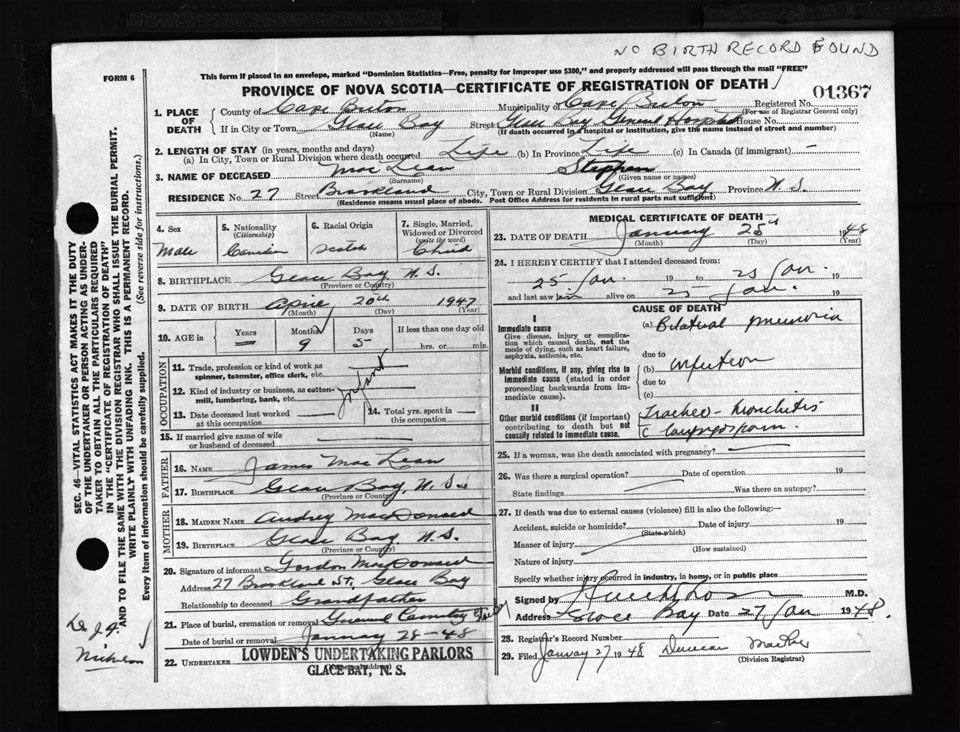 NO BIRTH RECORD FOUND
FORM 6
This form if placed in an envelope, marked "Dominion Statistics—Free, penalty for improper use $300," and properly addressed will pass through the mail "FREE"
PROVINCE OF NOVA SCOTIA—CERTIFICATE OF REGISTRATION OF DEATH
01367
1. PLACE OF DEATH
County of Cape Breton Municipality of Cape Breton Registered No.
(For use of Registrar General only)
If in City or Town Glace Bay Street Glace Bay General Hospital House No.
(Name) (If death occurred in a hospital or institution, give the name instead of street and number)
2. LENGTH OF STAY (in years, months and days)
(a) In City, Town or Rural Division where death occurred Life (b) In Province Life (c) In Canada (if immigrant) –
3. NAME OF DECEASED Mac Lean Stephan
(Surname) (Given name or names)
RESIDENCE No. 27 Street Brookland City, Town or Rural Division Glace Bay Province N.S.
(Residence means usual place of abode. Post Office Address for residents in rural parts not sufficient)
4. Sex
Male
5. Nationality
(Citizenship)
Canadian
6. Racial Origin
Scotch
7. Single, Married, Widowed or Divorced
(write the word)
Child
8. BIRTHPLACE Glace Bay N.S.
(Province or Country)
9. DATE OF BIRTH April 20th 1947
(Month) (Day) (Year)
10. AGE in
Years Months Days If less than one day old
9 5 hrs. or min.
OCCUPATION
11. Trade, profession or kind of work as spinner, teamster, office clerk, etc.
12. Kind of industry or business, as cotton-mill, lumbering, bank, etc.
Infant
13. Date deceased last worked at this occupation
14. Total yrs. spent in this occupation
15. If married give name of wife or husband of deceased
FATHER
16. NAME James Mac Lean
17. BIRTHPLACE Glace Bay, N.S.
(Province or Country)
MOTHER
18. MAIDEN NAME Audrey MacDonald
19. BIRTHPLACE Glace Bay N.S.
(Province or Country)
20. Signature of informant Gordon MacDonald
Address 27 Brookland St., Glace Bay
Relationship to deceased Grandfather
21. Place of burial, cremation or removal
Date of burial or removal January 28-48
22. UNDERTAKER LOWDEN'S UNDERTAKING PARLORS
GLACE BAY, N. S.
MEDICAL CERTIFICATE OF DEATH
23. DATE OF DEATH January 25th 1948
(Month) (Day) (Year)
24. I HEREBY CERTIFY that I attended deceased from:
25 Jan. 19 to 25 Jan. 19
and last saw him alive on 25 Jan. 19
CAUSE OF DEATH
I
Immediate cause
Give disease, injury or complication which caused death, not the mode of dying, such as heart failure, asphyxia, asthenia, etc.
(a) Bilateral pneumonia
due to
Morbid conditions, if any, giving rise to immediate cause (stated in order proceeding backwards from immediate cause).
(b) infection
due to
(c)
II
Other morbid conditions (if important) contributing to death but not causally related to immediate cause.
Tracheo-bronchitis
c laryngospasm.
25. If a woman, was the death associated with pregnancy?
26. Was there a surgical operation? Date of operation 19
State findings Was there an autopsy?
27. If death was due to external causes (violence) fill in also the following:—
Accident, suicide or homicide? Date of injury 19
(State which)
Manner of injury
(How sustained)
Nature of injury
Specify whether injury occurred in industry, in home, or in public place
Signed by M.D.
Address Glace Bay Date 27 Jan 1948.
28. Registrar's Record Number
29. Filed January 27 1948 Duncan
(Division Registrar)
SEC. 46—VITAL STATISTICS ACT MAKES IT THE DUTY OF THE UNDERTAKER OR PERSON ACTING AS UNDERTAKER TO OBTAIN ALL THE PARTICULARS REQUIRED IN THE "CERTIFICATE OF REGISTRATION OF DEATH" AND TO FILE THE SAME WITH THE DIVISION REGISTRAR WHO SHALL ISSUE THE BURIAL PERMIT.
WRITE PLAINLY WITH UNFADING INK. THIS IS A PERMANENT RECORD.
Every item of information should be carefully supplied. (See reverse side for instructions.)